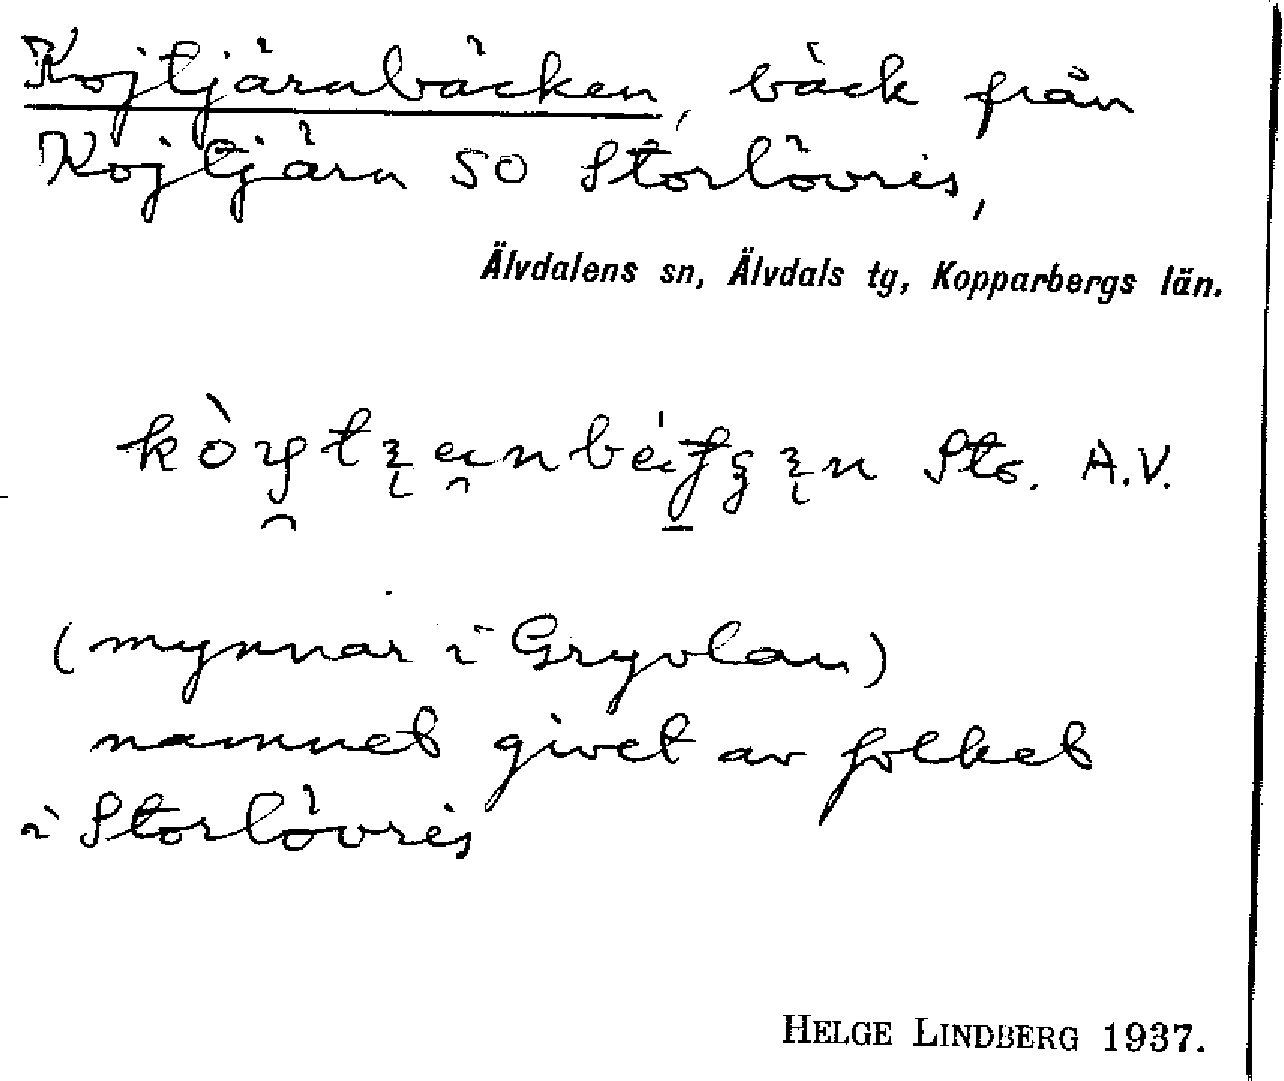 Kojtjärnbäcken, bäck från
Kojtjärn SO Storlövris,
Älvdalens sn, Älvdals tg, Kopparbergs län.
Sts. A.V.
(mynnar i Gryvlan)
namnet givet av folket
i Storlövris
HELGE LINDBERG 1937.